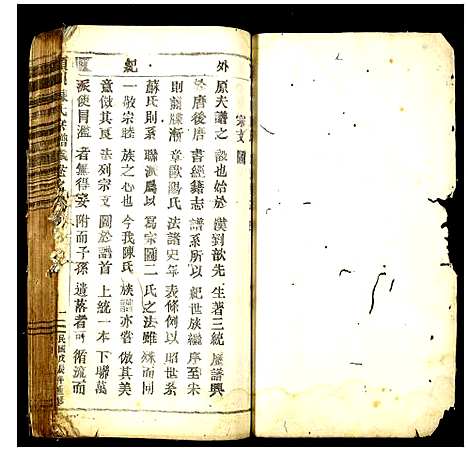 宗文圖
外紀
原夫譜之設也始於漢到歆先生著三統曆譜興
於唐後唐書經籍志譜系所以紀世族繼序至宋
則譜牒漸章歐陽氏法譜史年表條例以昭世系
蘇氏則系聯派屬以寫宗圖二氏之法雖殊而同
一敬宗睦族之心也今我陳氏族譜亦嘗倣其美
意倣其良法列宗文圖於譜首上統一本下聯萬
派使冒濫者無得妄附而子孫遺落者可循流而